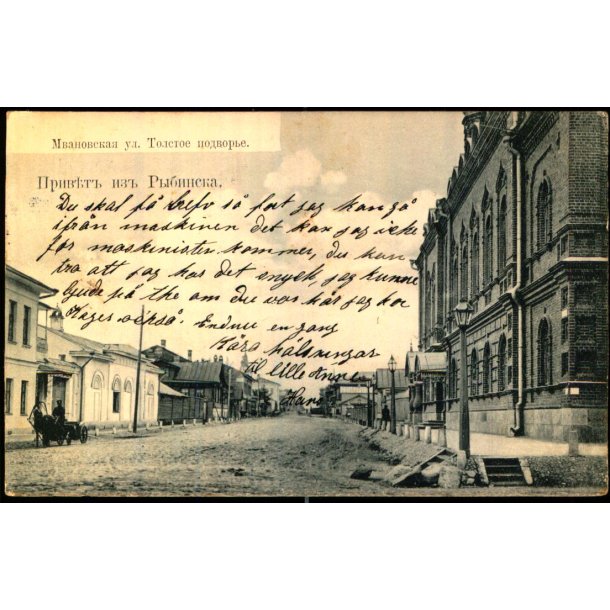 Мвановская ул. Толстое подворье.
Привѣтъ изъ Рыбинска,
Du skal få bref så fort jag kan gå
ifrån maskinen det kan jag icke
för maskinister kommer, du kan
tro att jag har det enyck, jag kunne
på the om du vor här jag
också. Endnu en gang
Kära hälsningar